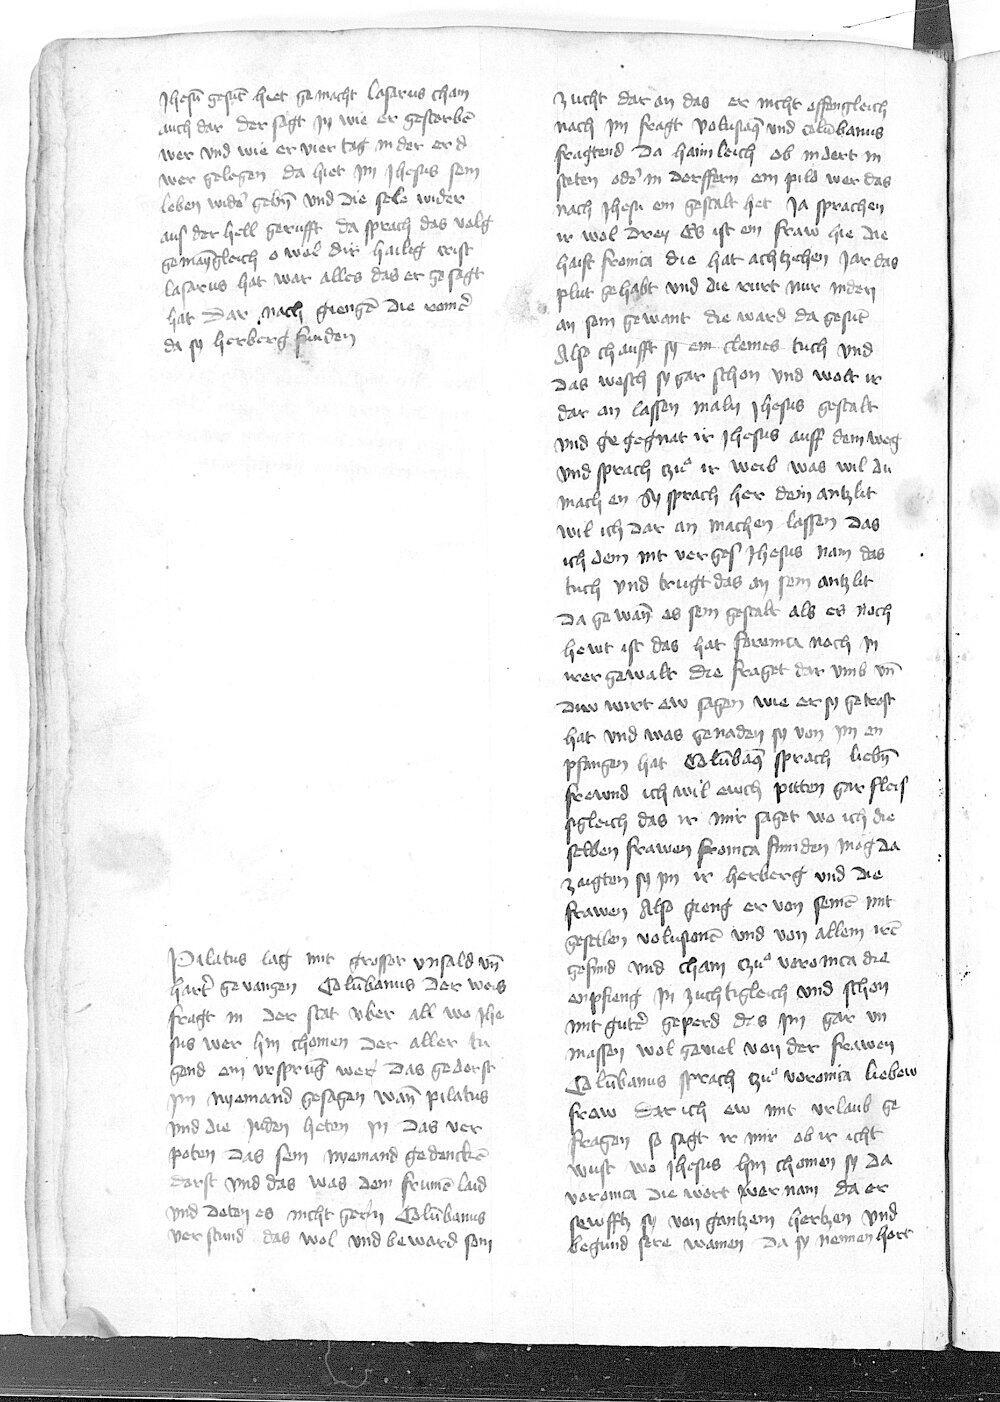 Jhesu gesūt hiet gemacht lasarus cham
auch dar der sagt in wie er gestorbē
wer vnd wie er vier tag in der erd
wer gelegen da hiet im Jhesus sein
leben wider gebn̄ vnd die sele wider
aus der hell gerufft da sprach das volg
gemaynigleich o wol dir hailig crist
lasarus hat war alles das er gesagt
hat Dar nach giengē die romer
da sy herberg funden
Pilatus lag mit grosser vnsald vn̄
harter gevangen Colūbanus der weis
fragt in der stat vber all wo Jhe
sus wer hin chomen der aller tu
gend ein vrsprūg wer das gedorst
im nyemand gesagen wan̄ pilatus
vnd die Juden heten in das ver
poten das sein nyemand gedenckē
dorst vnd das was dem frumē laid
vnd deten es nicht gern Colūbanus
verstund das wol vnd beward sein
zucht dar an das er nicht offengleich
nach im fragt volusianus vnd colūbanus
fragtend da haimleich ob indert in
steten oder in dorffern ein pild wer das
nach Jhesu ein gestalt het Ja sprachen
ir wol drey Es ist ein fraw hie die
haist fronica die hat achtzehen Jar das
plut gehabt vnd die rurt nur inden
an sein gewant die ward da gesūt
Also chaufft sy ein clemes tuch vnd
das wosch sy gar schon vnd wolt ir
dar an lassen maln Jhesus gestalt
vnd gegegnat ir Jhesus auff dem weg
vnd sprach czu ir weib was wil du
machen Sy sprach her dein antzlit
wil ich dar an machen lassen das
ich dein nit verges Jhesus nam das
tuch vnd trugt das an sein antzlit
Da gewan̄ es sein gestalt als es noch
hewt ist das hat foronica noch in
irer gewalt die fraget dar vmb vn̄
die wirt ew sagen wie er sy getrost
hat vnd was genaden sy von im en
pfangen hat Colūbanus sprach liebn̄
frewnd ich wil ewch pitten gar fleis
sigleich das ir mir saget wo ich die
selben frawen fronica finden mog da
zaigten sy im ir herberg vnd die
frawen Also gieng er von seinē mit
gesellen volusionē vnd von allem irē
gesind vnd cham czu veronica die
enpfieng in zuchtigleich vnd schon
mit guter geperd des im gar vn
massen wol geviel von der frawen
Colūbanus sprach czu veronica liebew
fraw dar ich ew mit vrlaub ge
fragen so sagt ir mir ob ir icht
wist wo Jhesus hin chomen sy da
voronica die wort vernam da er
sewfftz sy von gantzem hertzen vnd
begund sere wainen da sy nennen hort